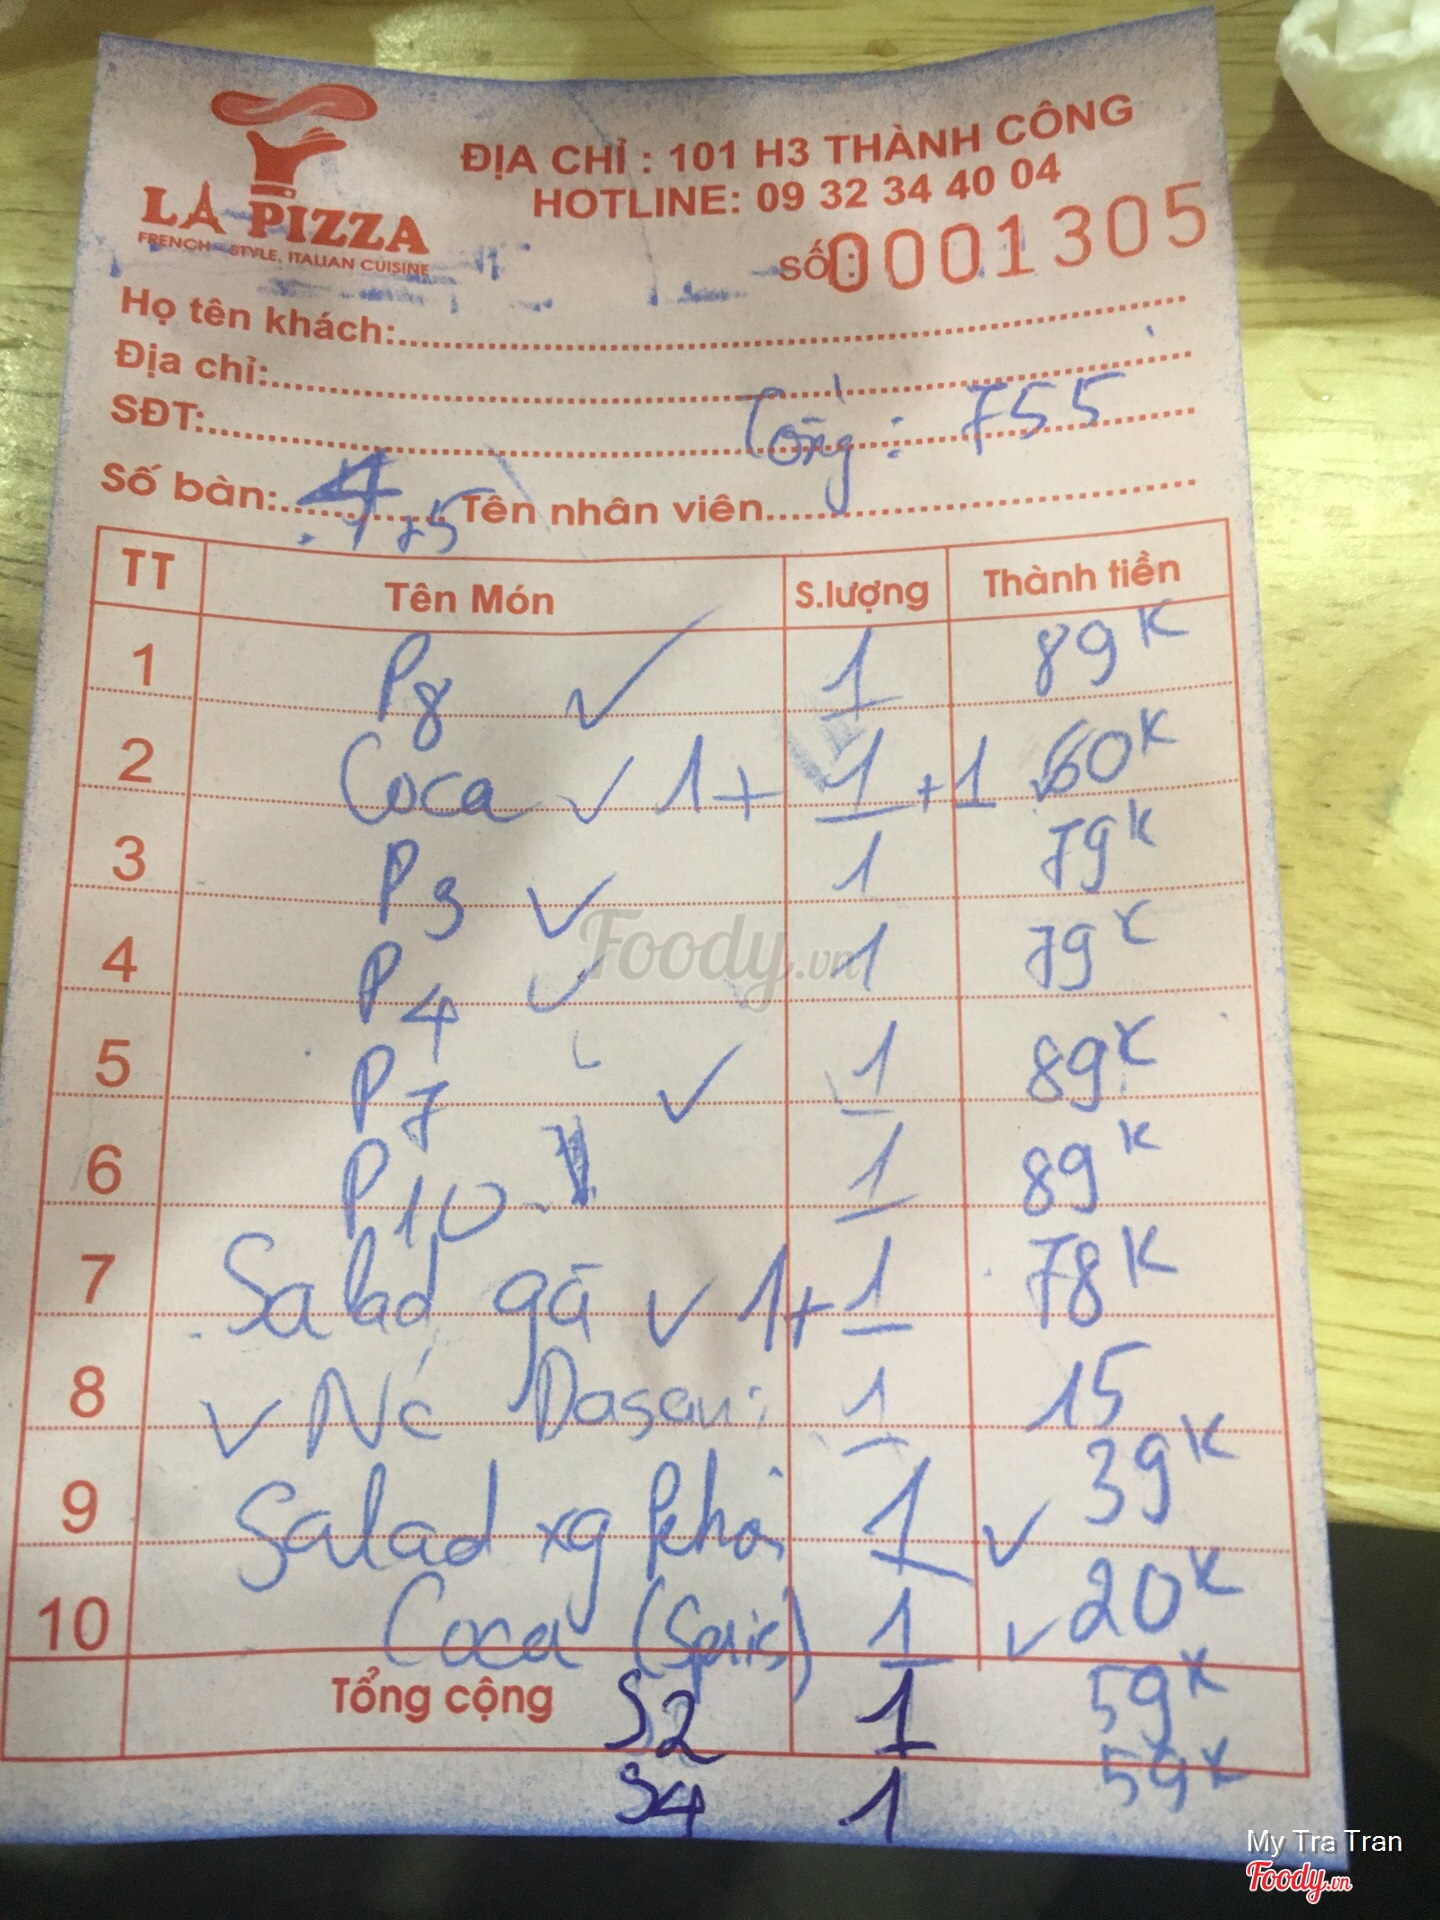 LA PIZZA
FRENCH - STYLE, ITALIAN CUISINE
ĐỊA CHỈ : 101 H3 THÀNH CÔNG
HOTLINE: 09 32 34 40 04
SỐ: 0001305
Họ tên khách:
Địa chỉ:
SĐT:
Tổng: 755
Số bàn: 4+5 Tên nhân viên
TT Tên Món S.lượng Thành tiền
1 P8 ✓ 1 89K
2 Coca ✓ 1+1+1 60K
3 P3 ✓ 1 79K
4 P4 ✓ 1 79K
5 P7 ✓ 1 89K
6 P10 1 89K
7 Salad gà ✓ 1+1 78K
8 ✓ Dasani 1 15
9 Salad xg khói 1 ✓ 39K
10 Coca 1 ✓ 20K
Tổng cộng S2 1 59K
S4 1 59K
Foody.vn
My Tra Tran
Foody.vn